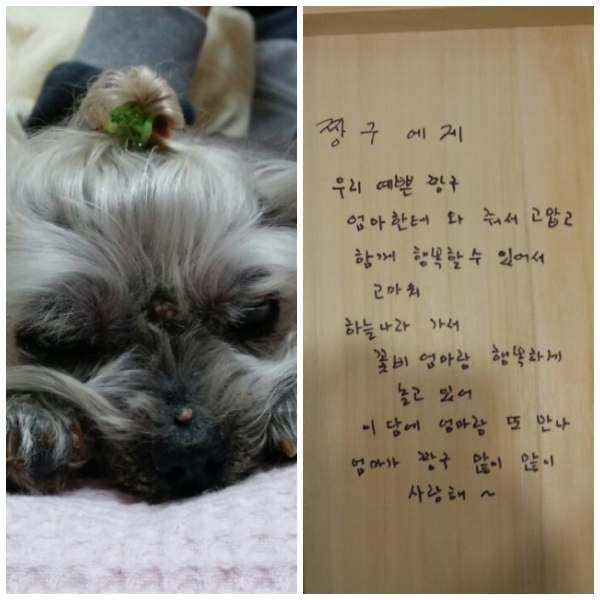 짱구에게
우리 예쁜 짱구
엄마한테 와 줘서 고맙고
함께 행복할수 있어서
고마워
하늘나라 가서
꽃비 엄마랑 행복하게
놀고 있어
이 담에 엄마랑 또 만나
엄마가 짱구 많이 많이
사랑해 ~